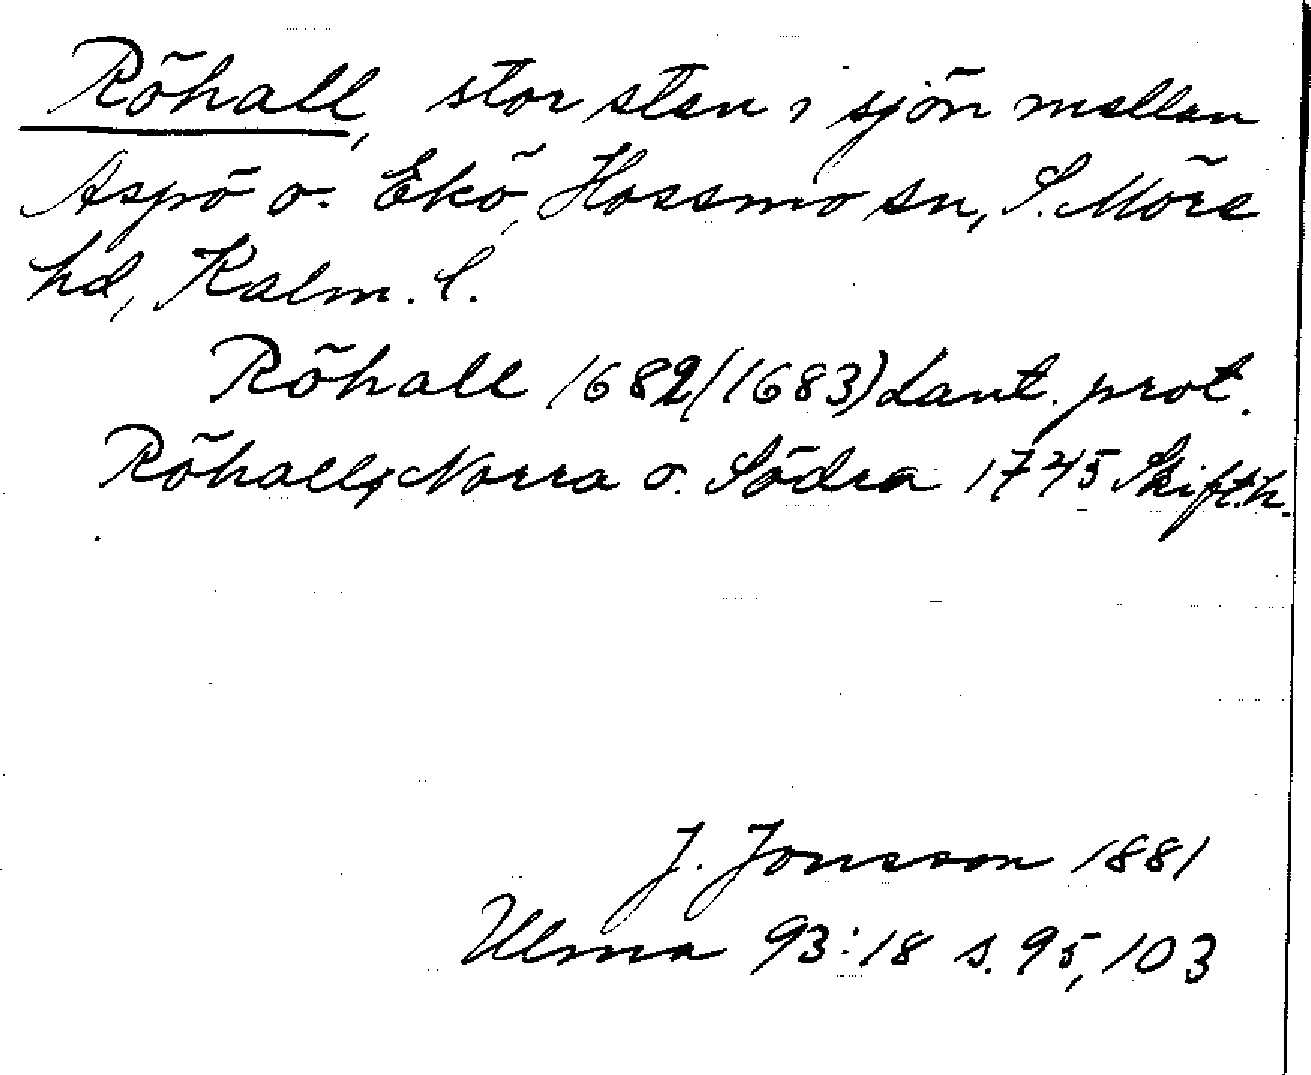 Röhall, stor sten i sjön mellan
Aspö o. Ekö, Hossmo sn, S. Möre
hd, Kalm. l.
Röhall 1682 (1683) Lant. prot.
Röhall, Norra o. Södra 1745 Skift.h.
J. Jonsson 1881
Ulma 93:18 s. 95, 103